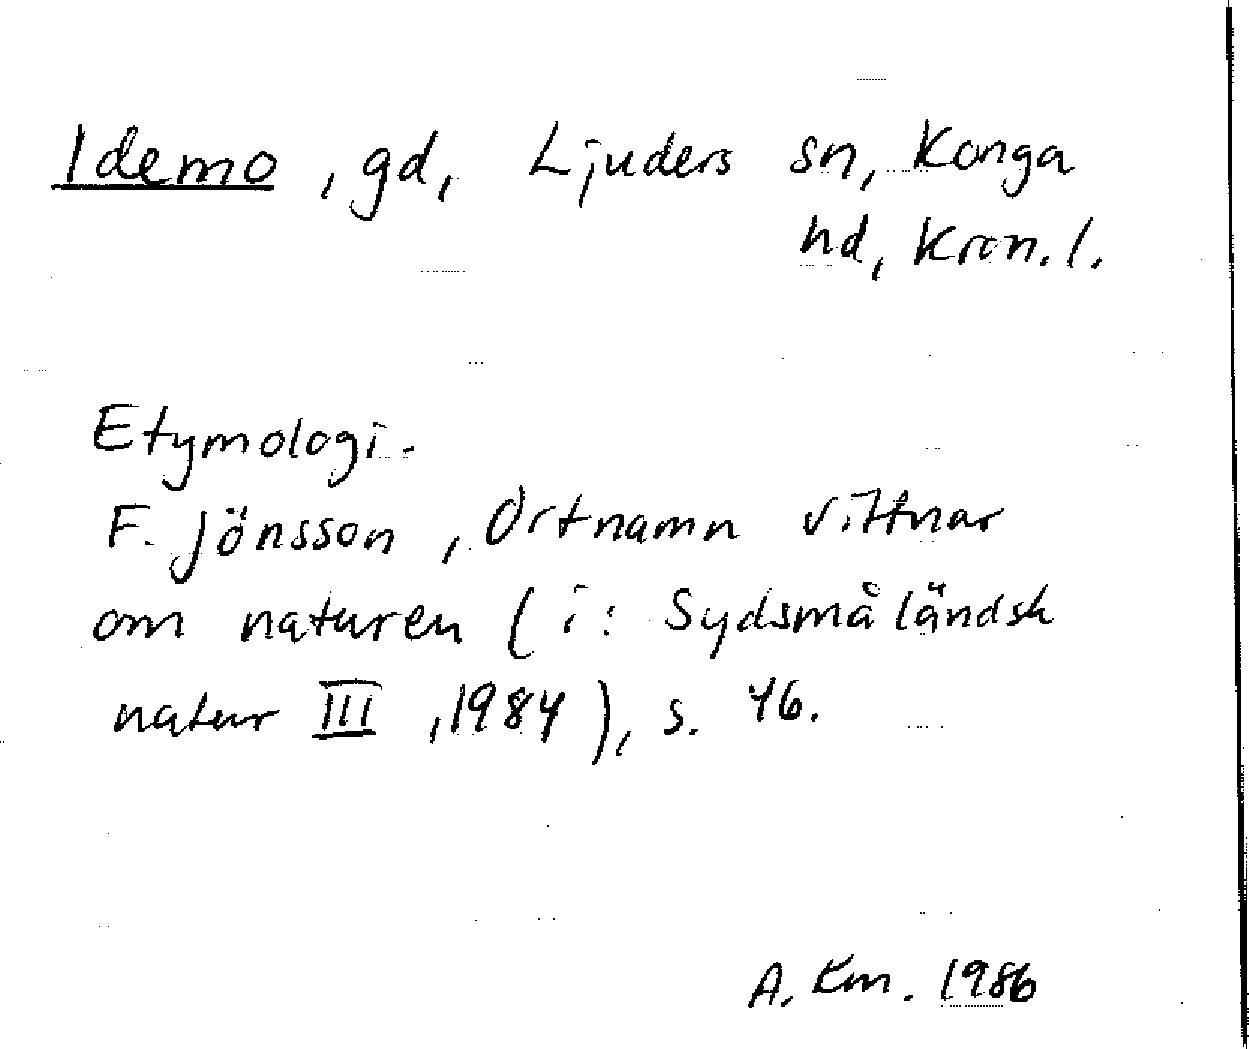 Idemo, gd, Ljuders sn, Konga
hd, Kron. l.
Etymologi.
F. Jönsson, Ortnamn vittnar
om naturen (i: Sydsmåländsk
natur III, 1984), s. 46.
A. Km. 1986